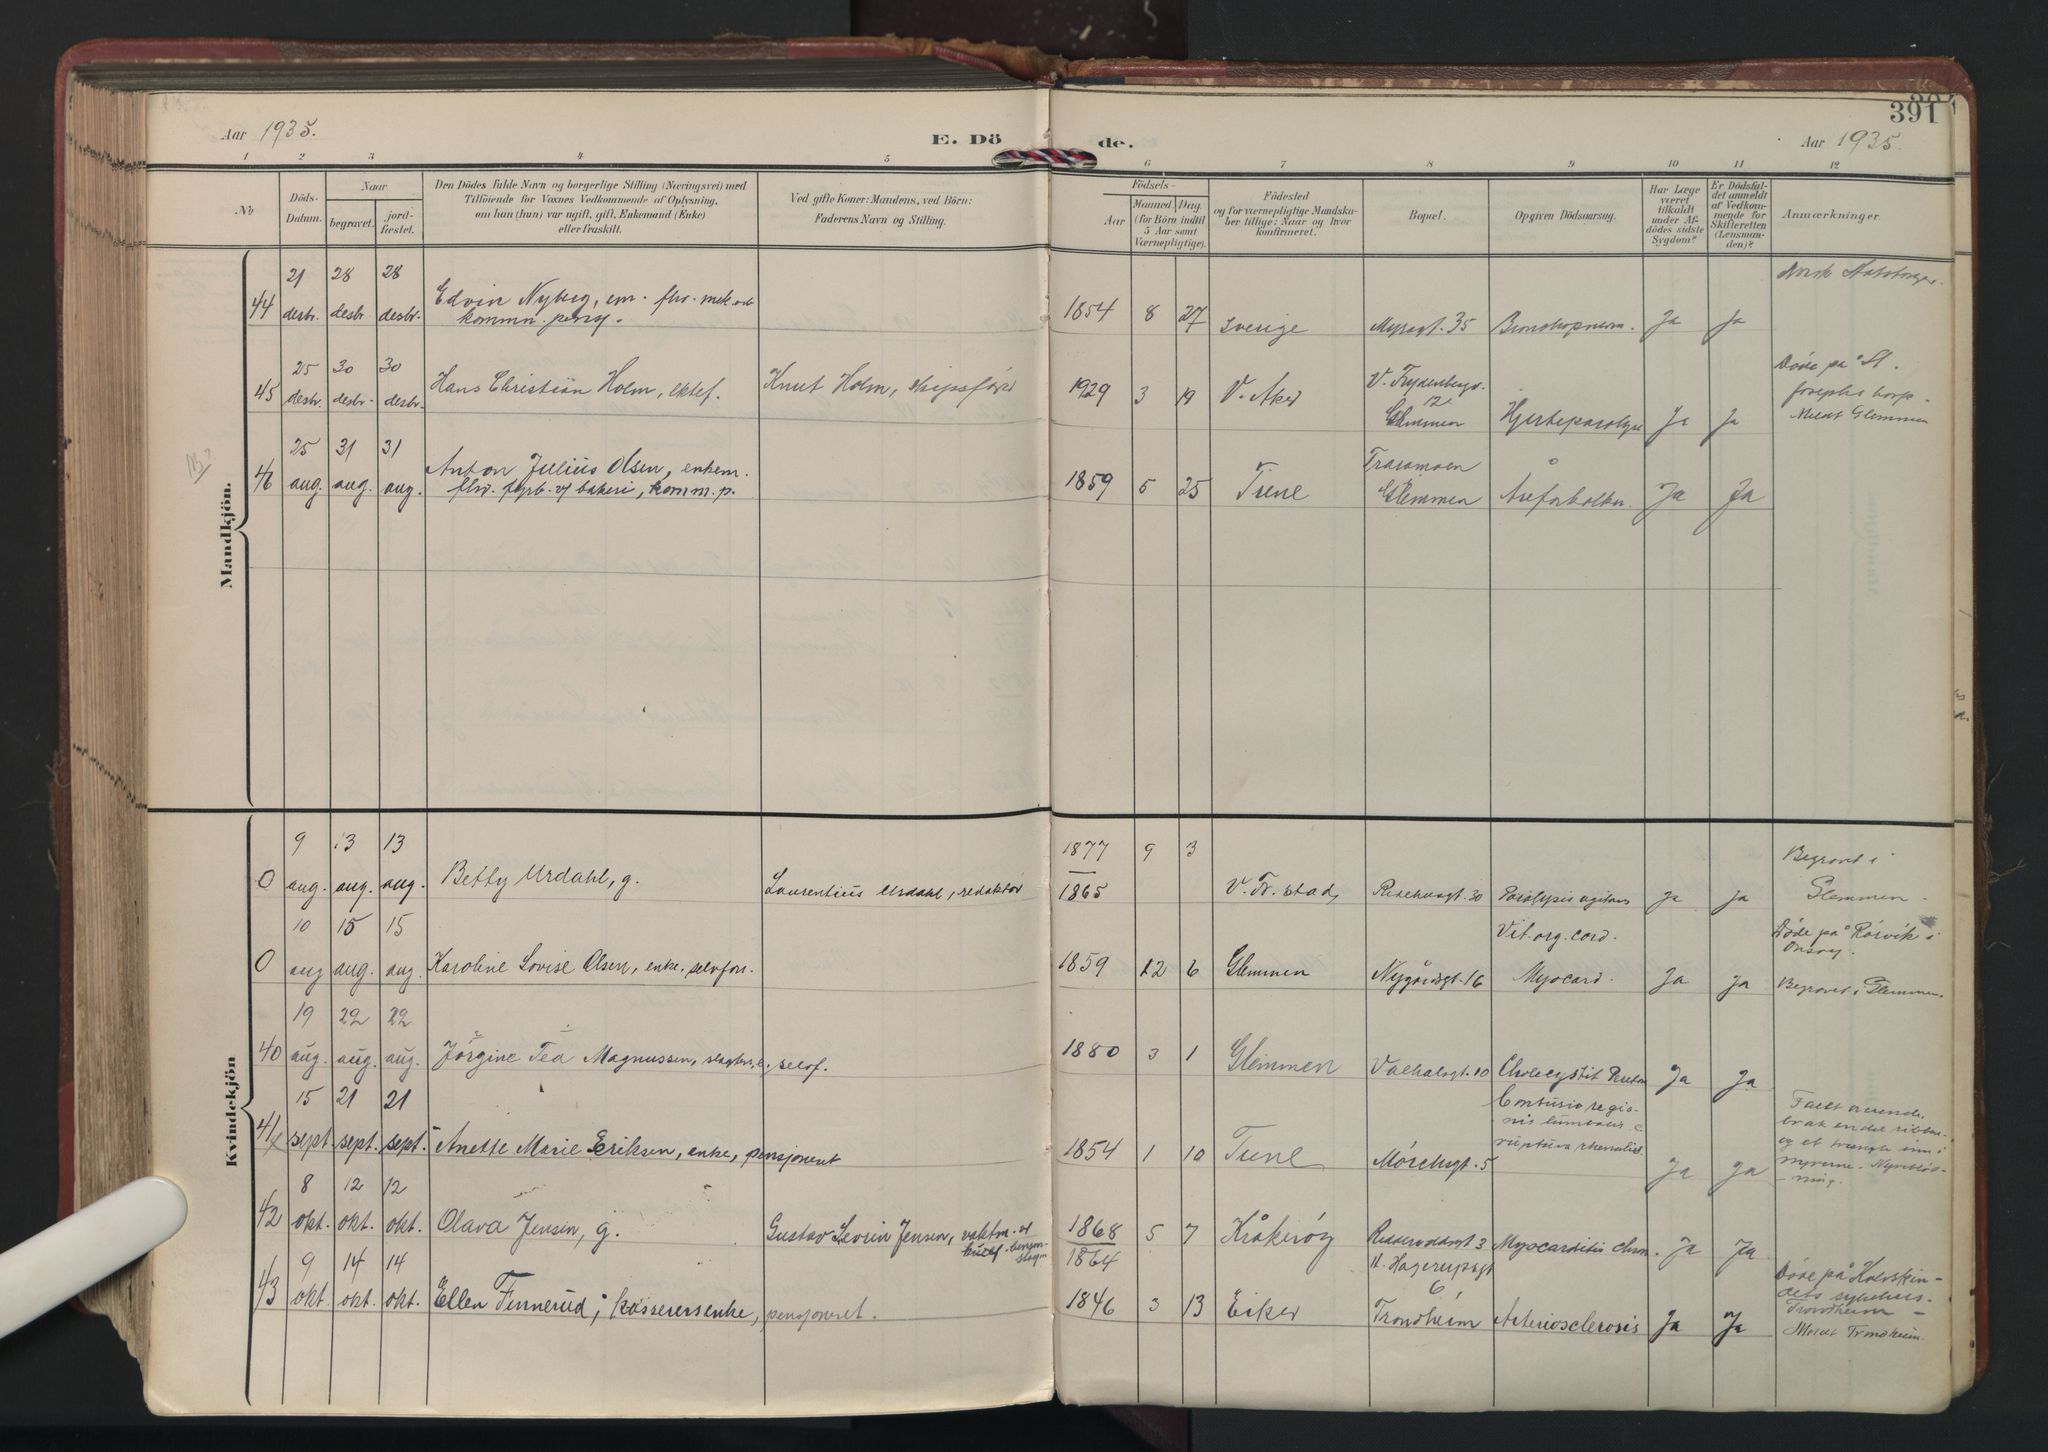 391
Aar 1935.
E. Dö
de.
Aar 1935.
1 2 3 4 5 6 7 8 9 10 11 12
No
Döds-
Datum.
Naar
begravet.
jord-
fæstet.
Den Dödes fulde Navn og borgerlige Stilling (Næringsvei) med
Tilföiende for Voxnes Vedkommende af Oplysning,
om han (hun) var ugift, gift, Enkemand (Enke)
eller fraskilt.
Ved gifte Koner: Mandens, ved Börn:
Faderens Navn og Stilling.
Födsels-
Aar
Maaned, Dag.
(for Börn indtil
5 Aar samt
Værnepligtige).
Födested
og for værnepligtige Mandska-
ber tillige: Naar og hvor
konfirmeret.
Bopæl.
Opgiven Dödsaarsag.
Har Læge
været
tilkaldt
under Af-
dödes sidste
Sygdom?
Er Dödsfal-
det anmeldt
af Vedkom-
mende for
Skifteretten
(Lensman-
den)?
Anmærkninger.
Mandkjön.
21 28 28
44 desbr. desbr desbr. Edvin Nyberg, em. fhv. mek. 1854 8 27 Sverige 35 Ja Ja
kommn. pensj.
Norsk Statsborger.
25 30 30
45 desbr. desbr. desbr. Hans Christian Holm, ektef. Knut Holm, skipsfører 1929 3 19 V. Aker
12
Glemmen Hjerteparalyse Ja Ja
Døde på St.
Josephs hosp.
Meldt Glemmen
25 31 31
46 aug. aug. aug. Anton Julius Olsen, enkem. 1859 5 25 Tune
fhv. v/ bakeri, komm. p.
Traramoen
Glemmen Åreforkalkn. Ja Ja
Kvindekjön
9 13 13
0 aug. aug. aug. Betty Urdahl, g. Laurentius Urdahl, redaktør
1877 9 3
1865 V. Fr. stad, 30 Paralysis agitans Ja Ja
Begravet i
Glemmen.
10 15 15
0 aug aug. aug. Karoline Lovise Olsen, enke, selvfors. 1859 12 6 Glemmen Nygårdsgt. 16
Vit. org. cord.
Myocard. Ja Ja
Døde på Rørvik i
Onsøy.
Begravet i Glemmen.
19 22 22
40 aug. aug. aug. Jørgine Tea Magnussen, selvf. 1880 3 1 Glemmen Valhalsgt. 10 Cholecystit Ja Ja
15 21 21
41 sept. sept. sept. Anette Marie Eriksen, enke, pensjoneret 1854 1 10 Tune Mørchsgt. 5
Contusio regio-
nis lumbalis c.
ruptura rhenalis Ja Ja
brak endel ribben
og et trængte inn i
nyrerne. Nyreblød-
ning.
8 12 12
42 okt. okt. okt. Olava Jensen, g. Gustav Sevrin Jensen, vaktm.
1868 5 7
1864 Kråkerøy 3 Myocarditis chron. Ja Ja
9 14 14
43 okt. okt. okt. Ellen Finnerud, kasserersenke, pensjoneret. 1846 3 13 Eiker
H. Hagerupsgt
6
Trondheim Arteriosclerosis Ja Ja
Trondheim
Meldt Trondheim.